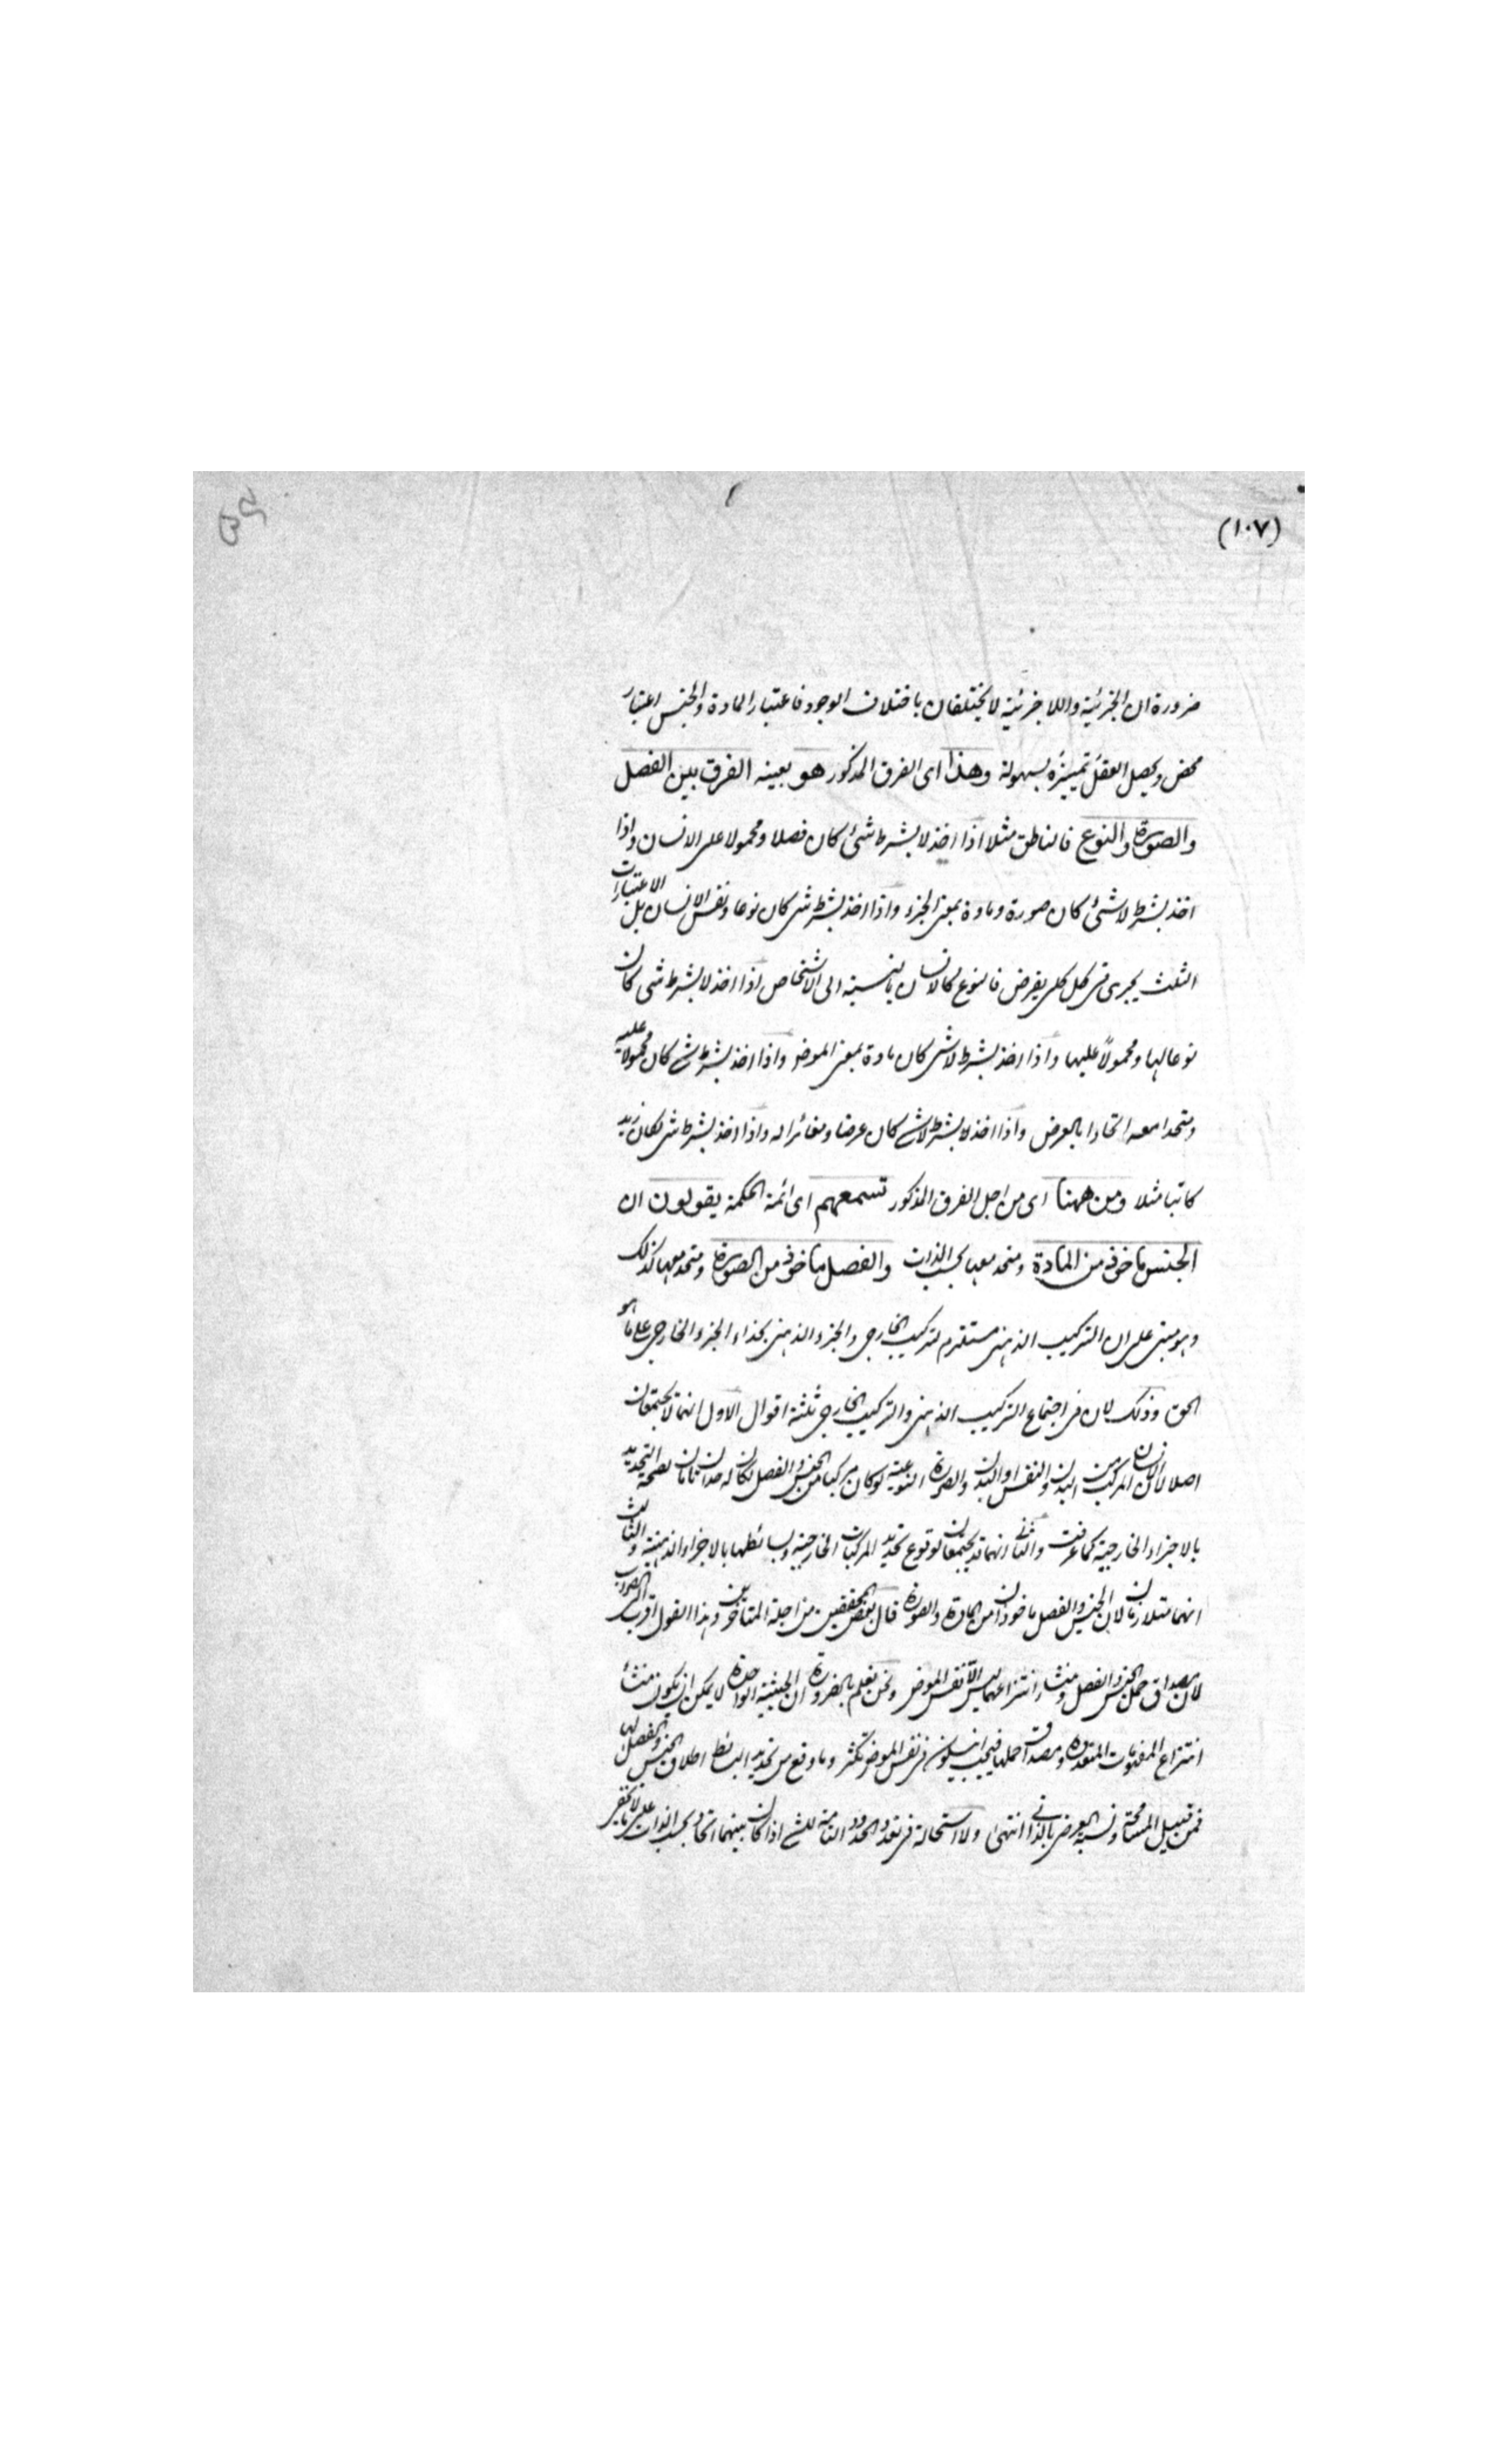 (١٠٧)
ضرورة ان الجزئية واللا جزئية لا يختلفان باختلاف الوجود فاعتبار المادة والجنس اعتبار
محض ويحصل العقل تمييزه بسهولة وهذا اى الفرق المذكور هو بعينه الفرق بين الفصل
والصورة والنوع فالناطق مثلا اذا اخذ لا بشرط شئ كان فصلا ومحمولا على الانسان واذا
اخذ بشرط لا شئ كان صورة ومادة بمعنى الجزء واذا اخذ بشرط شئ كان نوعا ونفس الانسان بل الاعتبارات
الثلث يجرى فى كل كلى يفرض فالنوع كالانسان بالنسبة الى الاشخاص اذا اخذ لا بشرط شئ كان
نوعا لها ومحمولاً عليها واذا اخذ بشرط لا شئ كان مادة بمعنى الموضوع واذا اخذ بشرط شئ كان محمولا عليه
ومتحدا معه اتحادا بالعرض واذا اخذ بشرط لا شئ كان عرضا ومغائرا له واذا اخذ بشرط شئ لكان زيد
كاتبا مثلا ومن ههنا اى من اجل الفرق المذكور تسمعهم اى ائمة الحكمة يقولون ان
الجنس ماخوذ من المادة ومتحد معها بحسب الذات والفصل ماخوذ من الصورة ومتحد معها كذلك
وهو مبنى على ان التركيب الذهنى مستلزم لتركيب الخارجى والجزء الذهنى بحذاء الجزء الخارجى على ما هو
الحق وذلك لان فى اجتماع التركيب الذهنى والتركيب الخارجى ثلثة اقوال الاول انهما لا يجتمعان
اصلا لان الانسان المركب من البدن والنفس او البدن والصورة النوعية لو كان مركبا من الجنس والفصل لكان له حدان تامان لصحة التحديد
بالاجزاء الخارجية كما عرفت والثانى انهما قد يجتمعان لوقوع تحديد المركبات الخارجية وبسائطها بالاجزاء الذهنية والثالث
انهما متلازمان لان الجنس والفصل ماخوذان من المادة والصورة قال بعض المحققين من اجلة المتاخرين وهذا القول اقرب الى الصواب
لان مصداق حمل الجنس والفصل ومنشا انتزاعهما ليس الا نفس الموضوع ونحن نعلم بالضرورة ان الحيثية الواحدة لا يمكن ان يكون منشأ
انتزاع المفهومات المتعددة ومصداق حملها فيجب ان يكون فى نفس الموضوع تكثر وما وقع من تحديد البسائط اطلاق الجنس والفصل لها
فمن قبيل المسامحة ونسبة العرض بالذاتى انتهى ولا استحالة فى تعدد الحدود التامة للشئ اذا كان بينهما اتحاد بحسب الذات على ما لا يخفى